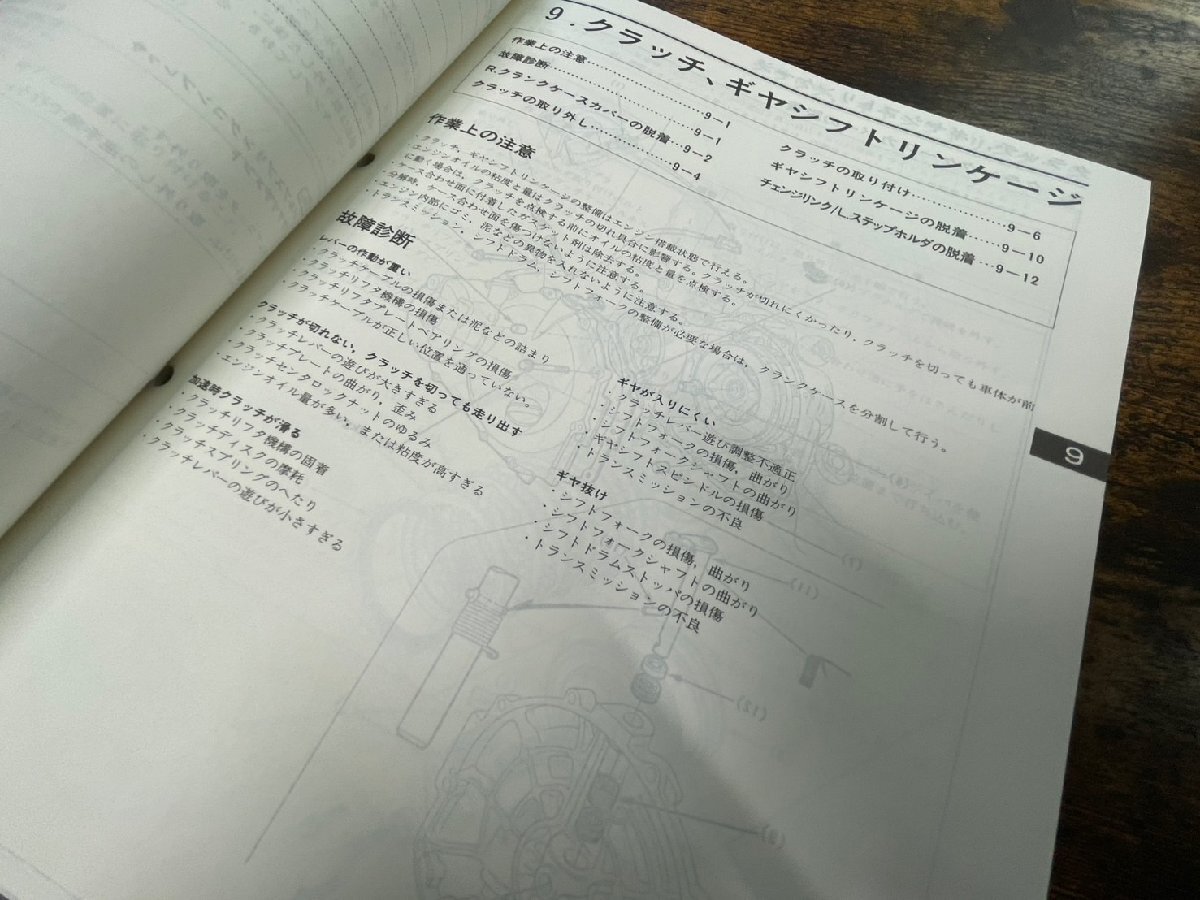 9. クラッチ、ギヤシフトリンケージ
作業上の注意……………………9−1
故障診断……………………………9−1
R.クランクケースカバーの脱着…9−2
クラッチの取り外し………………9−4
クラッチの取り付け………………9−6
ギヤシフトリンケージの脱着……9−10
チェンジリンク/L.ステップホルダの脱着…9−12
作業上の注意
・クラッチ、ギヤシフトリンケージの整備はエンジン搭載状態で行える。
・エンジンオイルの粘度と量はクラッチの切れ具合に影響する。クラッチが切れにくかったり、クラッチを切っても車体が前
に動く場合は、クラッチを点検する前にオイルの粘度と量を点検する。
・分解時、合わせ面に付着したガスケット剤は除去する。
・ケース合わせ面を傷つけないように注意する。
・エンジン内部にゴミ、泥などの異物を入れないように注意する。
・トランスミッション、シフトドラム、シフトフォークの整備が必要な場合は、クランクケースを分割して行う。
故障診断
レバーの作動が重い
・クラッチケーブルの損傷または泥などの詰まり
・クラッチリフタ機構の損傷
・クラッチリフタプレートベアリングの損傷
・クラッチケーブルが正しい位置を通っていない。
クラッチが切れない，クラッチを切っても走り出す
・クラッチレバーの遊びが大きすぎる
・クラッチプレートの曲がり，歪み
・クラッチセンタロックナットのゆるみ
・エンジンオイル量が多い，または粘度が高すぎる
加速時クラッチが滑る
・クラッチリフタ機構の固着
・クラッチディスクの摩耗
・クラッチスプリングのへたり
・クラッチレバーの遊びが小さすぎる
ギヤが入りにくい
・クラッチレバー遊び調整不適正
・シフトフォークの損傷，曲がり
・シフトフォークシャフトの曲がり
・ギヤシフトスピンドルの損傷
・トランスミッションの不良
ギヤ抜け
・シフトフォークの損傷，曲がり
・シフトフォークシャフトの曲がり
・シフトドラムストッパの損傷
・トランスミッションの不良
9